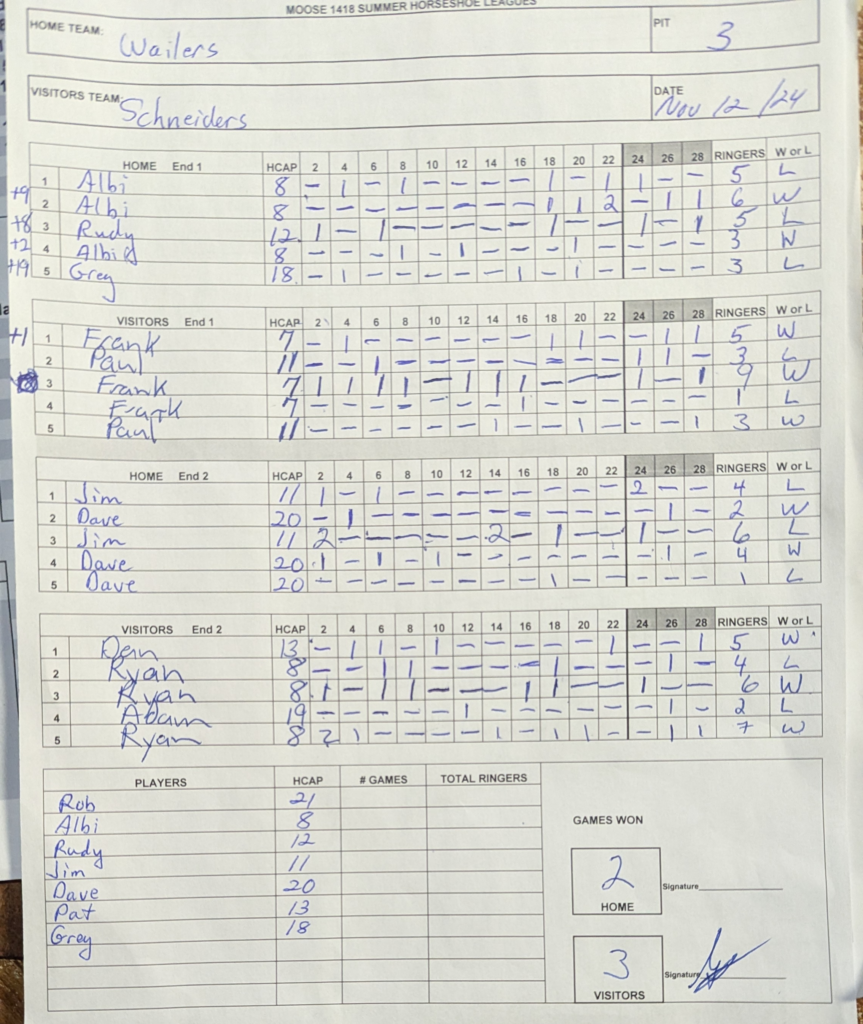 MOOSE 1418 SUMMER HORSESHOE LEAGUES
HOME TEAM: Wailers PIT 3
VISITORS TEAM: Schneiders DATE Nov 12/24
HOME End 1 HCAP 2 4 6 8 10 12 14 16 18 20 22 24 26 28 RINGERS W or L
1 Albi 8 - 1 - 1 - - - - 1 - 1 1 - - 5 L
+9 2 Albi 8 - - - - - - - - 1 1 2 - 1 1 6 W
+8 3 Rudy 12 1 - 1 - - - - - 1 - - 1 - 1 5 L
+2 4 Albi 8 - - - 1 - 1 - - - 1 - - - - 3 W
+19 5 Greg 18 - 1 - - - - - 1 - 1 - - - - 3 L
VISITORS End 1 HCAP 2 4 6 8 10 12 14 16 18 20 22 24 26 28 RINGERS W or L
+1 1 Frank 7 - 1 - - - - - - 1 1 - - 1 1 5 W
2 Paul 11 - - 1 - - - - - - - - 1 1 - 3 L
3 Frank 7 1 1 1 1 - 1 1 1 - - - 1 - 1 9 W
4 Frank 7 - - - - - - - 1 - - - - - - 1 L
5 Paul 11 - - - - - - 1 - - 1 - - - 1 3 W
HOME End 2 HCAP 2 4 6 8 10 12 14 16 18 20 22 24 26 28 RINGERS W or L
1 Jim 11 1 - 1 - - - - - - - - 2 - - 4 L
2 Dave 20 - 1 - - - - - - - - - - 1 - 2 W
3 Jim 11 2 - - - - - 2 - 1 - - 1 - - 6 L
4 Dave 20 1 - 1 - 1 - - - - - - - 1 - 4 W
5 Dave 20 - - - - - - - - 1 - - - - - 1 L
VISITORS End 2 HCAP 2 4 6 8 10 12 14 16 18 20 22 24 26 28 RINGERS W or L
1 Dan 13 - 1 1 - 1 - - - - - 1 - - 1 5 W
2 Ryan 8 - - 1 1 - - - - 1 - - - 1 - 4 L
3 Ryan 8 1 - 1 1 - - - 1 1 - - 1 - - 6 W
4 Adam 19 - - - - - 1 - - - - - - 1 - 2 L
5 Ryan 8 2 1 - - - - 1 - 1 1 - - 1 1 7 W
PLAYERS HCAP # GAMES TOTAL RINGERS
Rob 21
Albi 8
Rudy 12
Jim 11
Dave 20
Pat 13
Greg 18
GAMES WON
2
HOME
Signature
3
VISITORS
Signature